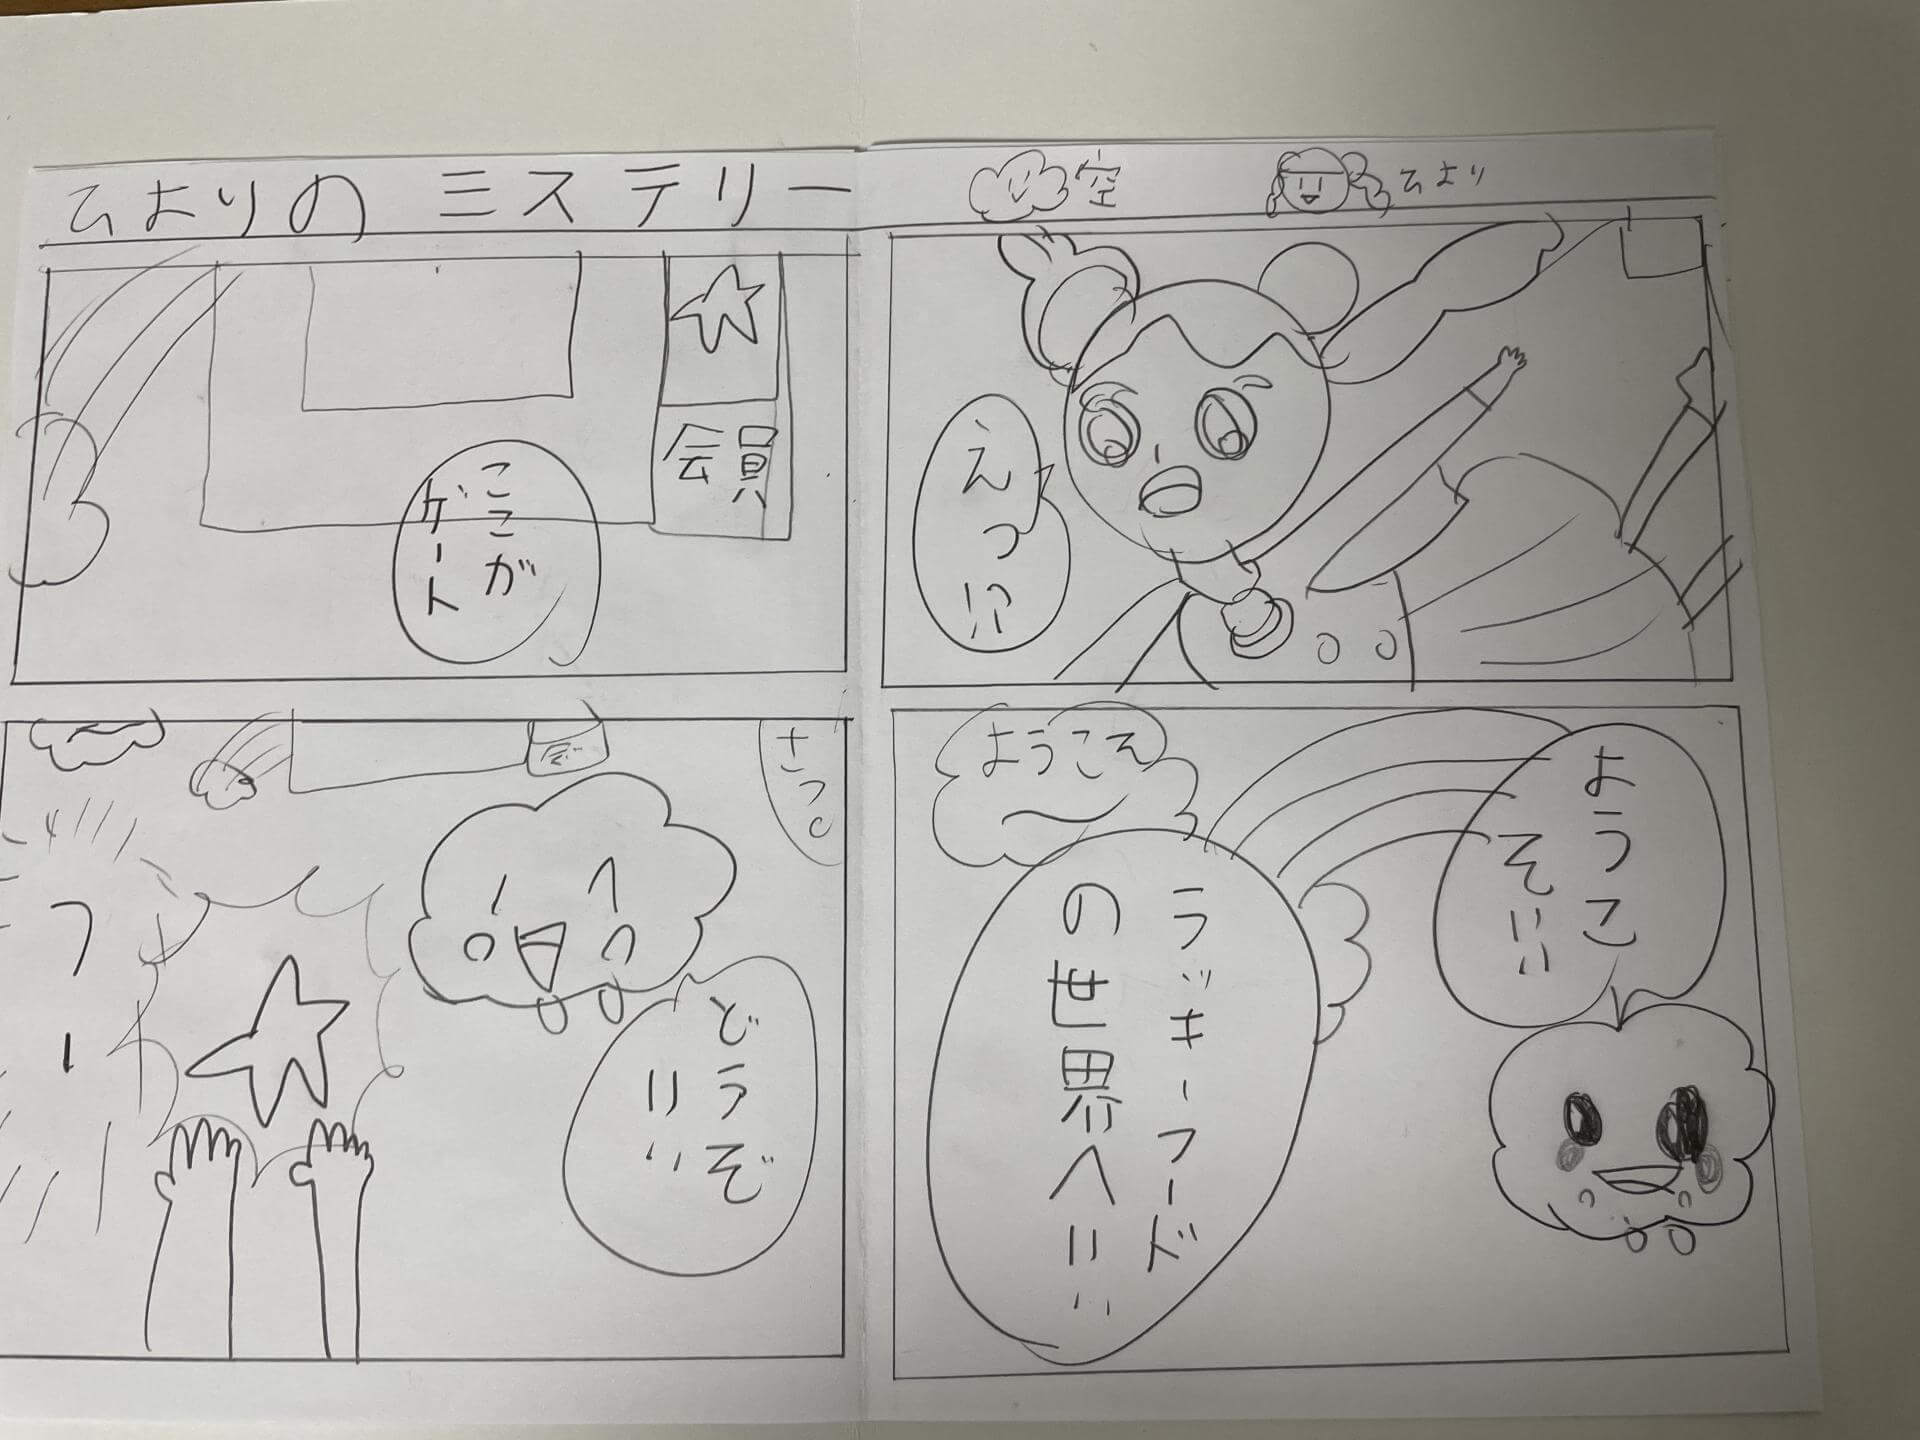 ひよりのミステリー
空
ひより
えっ!?
ようこ
そ!!!
ようこそ
ラッキーフード
の世界へ!!!!
会員
ここが
ゲート
さっ。
どうぞ
!!!!